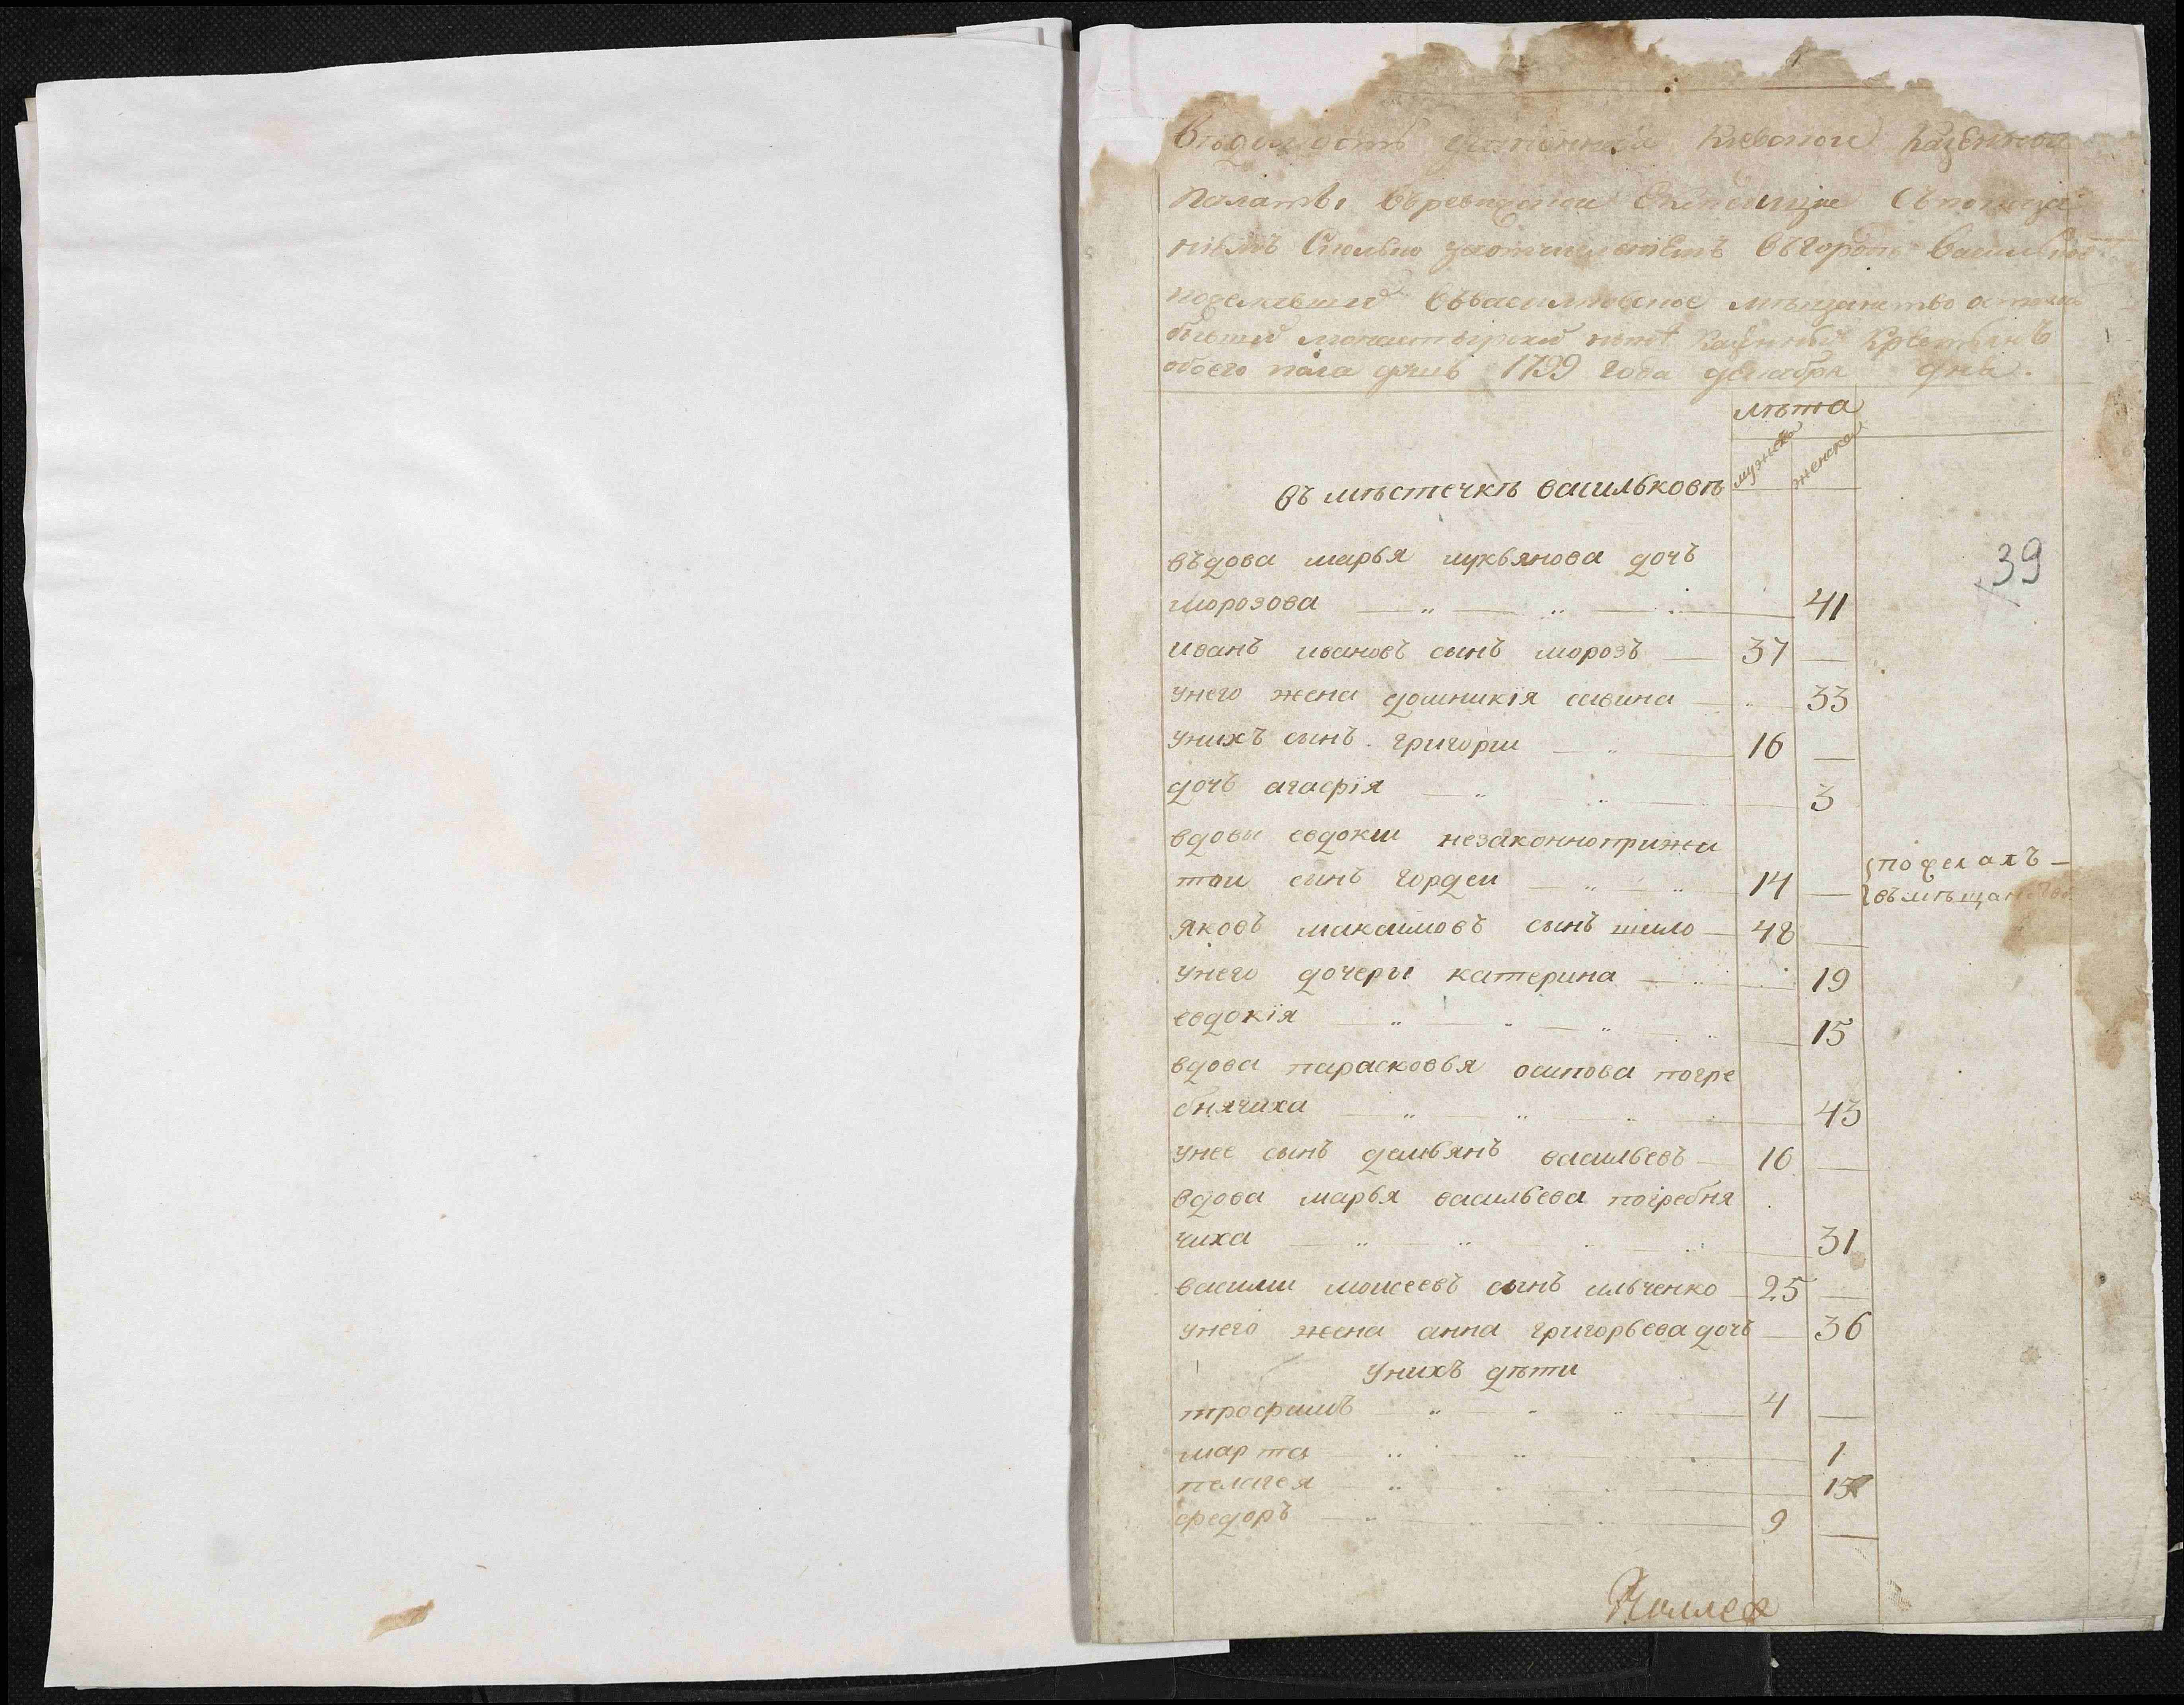 Киевской Казенной
Палаты Въревизской Експедицие Съпоказа
ніемъ Сколько Въгороде Василков
Въвасилковское мѣщанство
бывшей монастырской Казенныхъ Крестьянъ
обоего пола душъ 1799 года декабря дня.
лѣта
мужска женска
въ мѣстечкѣ васильковѣ
39
въдова марья лукьянова дочь
морозова 41
иванъ ивановъ сынъ морозъ 37 —
унего жена домникія савина 33
унихъ сынъ григории 16 —
дочь агафія 3
вдовы евдокии незаконноприжи
тои сынъ гордеи 14 —
въмѣщанство
яковъ максимовъ сынъ шило 48 —
унего дочеры катерина 19
евдокія 15
вдова парасковья осипова погре
бнячиха 43
унее сынъ демьянъ васильевъ 16 —
вдова марья васильева погребня
чиха 31
василии моисеевъ сынъ ильченко 25 —
унего жена анна григорьева дочь — 36
унихъ дѣти
трофимъ 4 —
марта 1
пелагея 15
федоръ 9 —